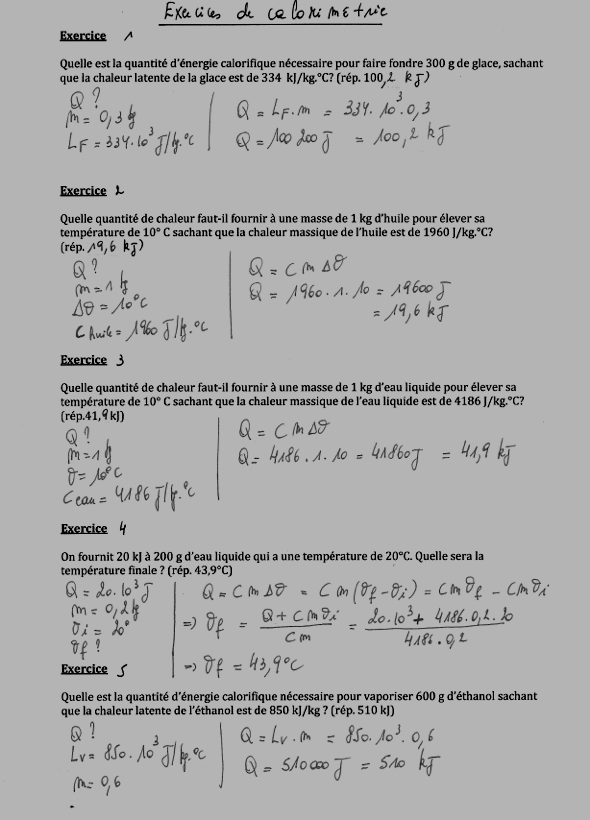 Exercices de calorimétrie
Exercice 1
Quelle est la quantité d'énergie calorifique nécessaire pour faire fondre 300 g de glace, sachant
que la chaleur latente de la glace est de 334 kJ/kg.°C? (rép. 100,2 kJ)
Q ?
m = 0,3 kg
LF = 334.10³ J/kg.°C
Q = LF.m = 334.10³.0,3
Q = 100 200 J = 100,2 kJ
Exercice 2
Quelle quantité de chaleur faut-il fournir à une masse de 1 kg d'huile pour élever sa
température de 10° C sachant que la chaleur massique de l'huile est de 1960 J/kg.°C?
(rép. 19,6 kJ)
Q ?
m = 1 kg
Δθ = 10°C
C huile = 1960 J/kg.°C
Q = C m Δθ
Q = 1960.1.10 = 19600 J
= 19,6 kJ
Exercice 3
Quelle quantité de chaleur faut-il fournir à une masse de 1 kg d'eau liquide pour élever sa
température de 10° C sachant que la chaleur massique de l'eau liquide est de 4186 J/kg.°C?
(rép.41,9 kJ)
Q ?
m = 1 kg
θ = 10°C
C eau = 4186 J/kg.°C
Q = C m Δθ
Q = 4186.1.10 = 41860 J = 41,9 kJ
Exercice 4
On fournit 20 kJ à 200 g d'eau liquide qui a une température de 20°C. Quelle sera la
température finale ? (rép. 43,9°C)
Q = 20.10³ J
m = 0,2 kg
θi = 20°
θf ?
Q = C m Δθ = C m (θf - θi) = C m θf - C m θi
=> θf = (Q + C m θi) / (C m) = (20.10³ + 4186.0,2.20) / (4186.0,2)
=> θf = 43,9°C
Exercice 5
Quelle est la quantité d'énergie calorifique nécessaire pour vaporiser 600 g d'éthanol sachant
que la chaleur latente de l'éthanol est de 850 kJ/kg ? (rép. 510 kJ)
Q ?
Lv = 850.10³ J/kg.°C
m = 0,6
Q = Lv.m = 850.10³.0,6
Q = 510000 J = 510 kJ